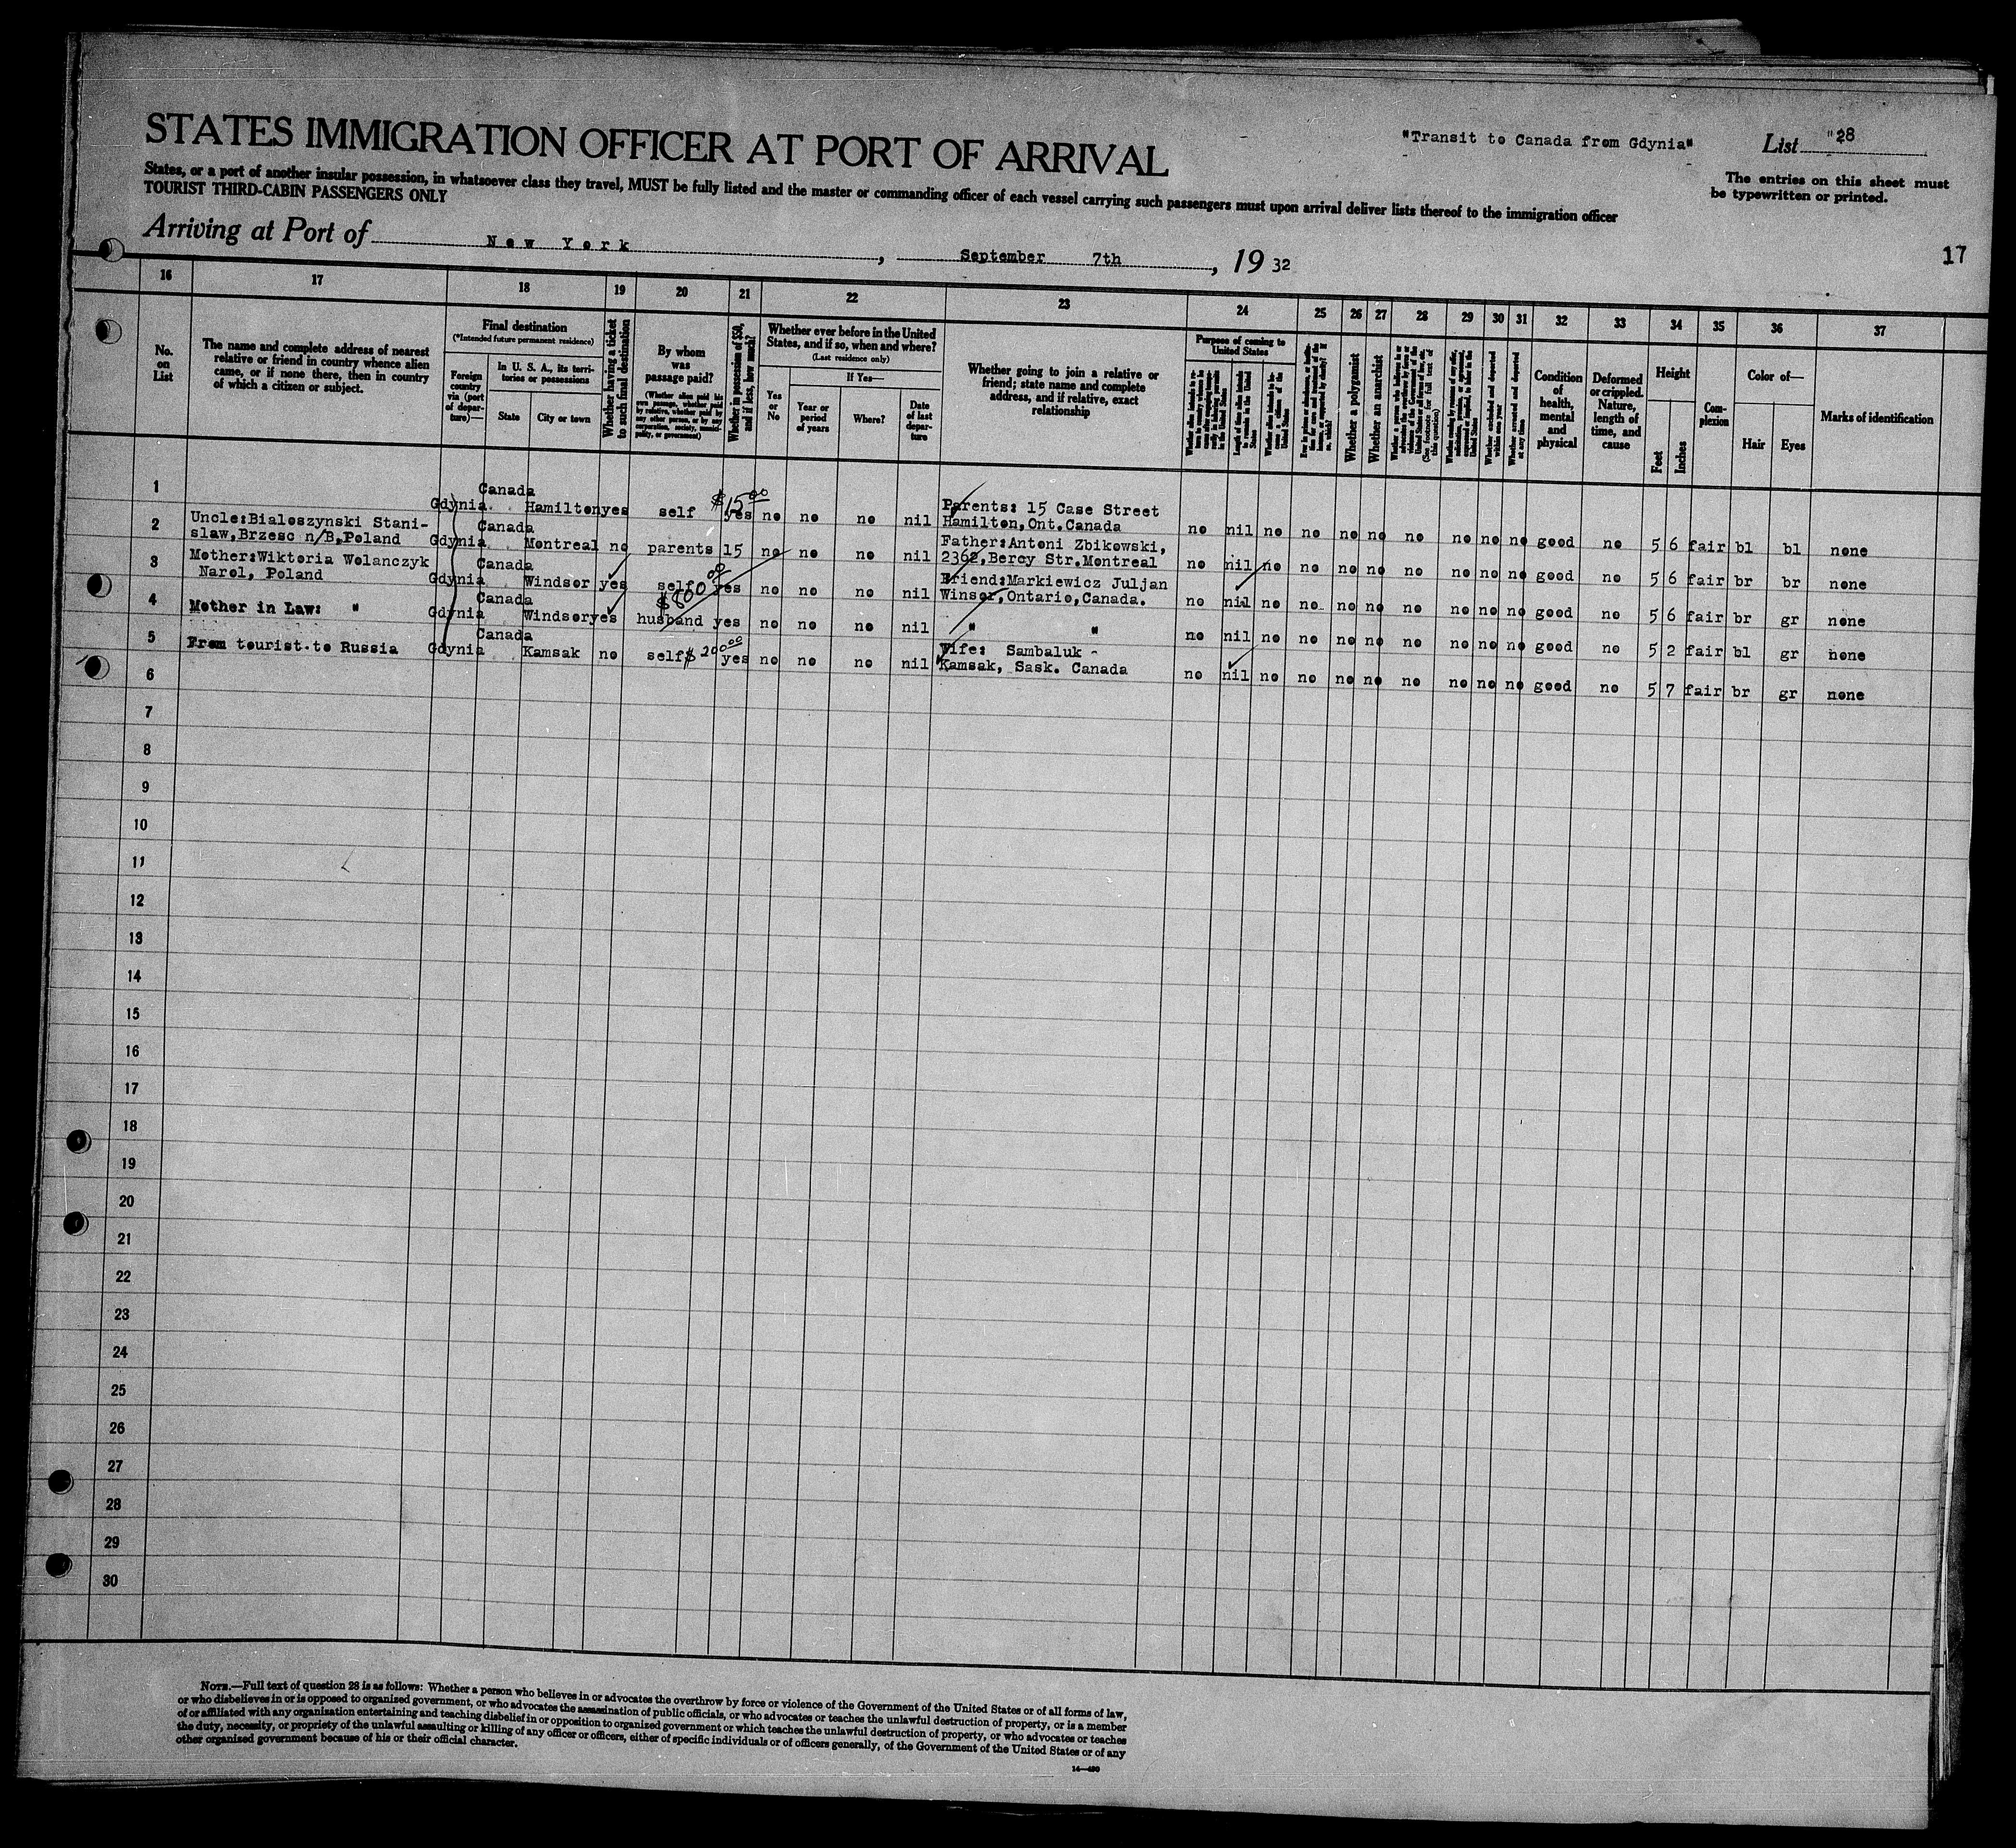 STATES IMMIGRATION OFFICER AT PORT OF ARRIVAL
"Transit to Canada from Gdynia"
List "28
States, or a port of another insular possession, in whatsoever class they travel, MUST be fully listed and the master or commanding officer of each vessel carrying such passengers must upon arrival deliver lists thereof to the immigration officer
TOURIST THIRD-CABIN PASSENGERS ONLY
The entries on this sheet must
be typewritten or printed.
Arriving at Port of New York, September 7th, 19 32
17
16 17 18 19 20 21 22 23 24 25 26 27 28 29 30 31 32 33 34 35 36 37
No. on List
The name and complete address of nearest relative or friend in country whence alien came, or if none there, then in country of which a citizen or subject.
Final destination
(*Intended future permanent residence)
Foreign country via (port of departure)—
In U. S. A., its territories or possessions
State
City or town
Whether having a ticket to such final destination
By whom was passage paid?
(Whether alien paid his own passage, whether paid by relative, whether paid by any other person, or by any corporation, society, municipality, or government)
Whether in possession of $50, and if less, how much?
Whether ever before in the United States, and if so, when and where?
(Last residence only)
Yes or No
If Yes—
Year or period of years
Where?
Date of last departure
Whether going to join a relative or friend; state name and complete address, and if relative, exact relationship
Purpose of coming to United States
Whether a polygamist
Whether an anarchist
Condition of health, mental and physical
Deformed or crippled. Nature, length of time, and cause
Height
Feet
Inches
Complexion
Color of—
Hair
Eyes
Marks of identification
1 Canada
Gdynia Hamilton yes self $15.00 yes no no no nil Parents: 15 Case Street
Hamilton, Ont. Canada no nil no no no no no no no no good no 5 6 fair bl bl none
2 Uncle:Bialoszynski Stani-
slaw,Brzesc n/B,Poland Canada
Gdynia Montreal no parents 15 no no no nil Father:Antoni Zbikowski,
2362,Bercy Str.Montreal no nil no no no no no no no no good no 5 6 fair br br none
3 Mother:Wiktoria Wolanczyk
Narol, Poland Canada
Gdynia Windsor yes self $800.00 yes no no no nil Friend:Markiewicz Juljan
Winsor,Ontario,Canada. no nil no no no no no no no no good no 5 6 fair br gr none
4 Mother in Law: " Canada
Gdynia Windsor yes husband yes no no no nil " " no nil no no no no no no no no good no 5 2 fair bl gr none
5 From tourist to Russia Canada
Gdynia Kamsak no self $200.00 yes no no no nil Wife: Sambaluk -
Kamsak, Sask. Canada no nil no no no no no no no no good no 5 7 fair br gr none
6
7
8
9
10
11
12
13
14
15
16
17
18
19
20
21
22
23
24
25
26
27
28
29
30
NOTE.—Full text of question 28 is as follows: Whether a person who believes in or advocates the overthrow by force or violence of the Government of the United States or of all forms of law,
or who disbelieves in or is opposed to organised government, or who advocates the assassination of public officials, or who advocates or teaches the unlawful destruction of property, or is a member
of or affiliated with any organisation entertaining and teaching disbelief in or opposition to organised government or which teaches the unlawful destruction of property, or who advocates or teaches
the duty, necessity, or propriety of the unlawful assaulting or killing of any officer or officers, either of specific individuals or of officers generally, of the Government of the United States or of any
other organised government because of his or their official character.
14—490